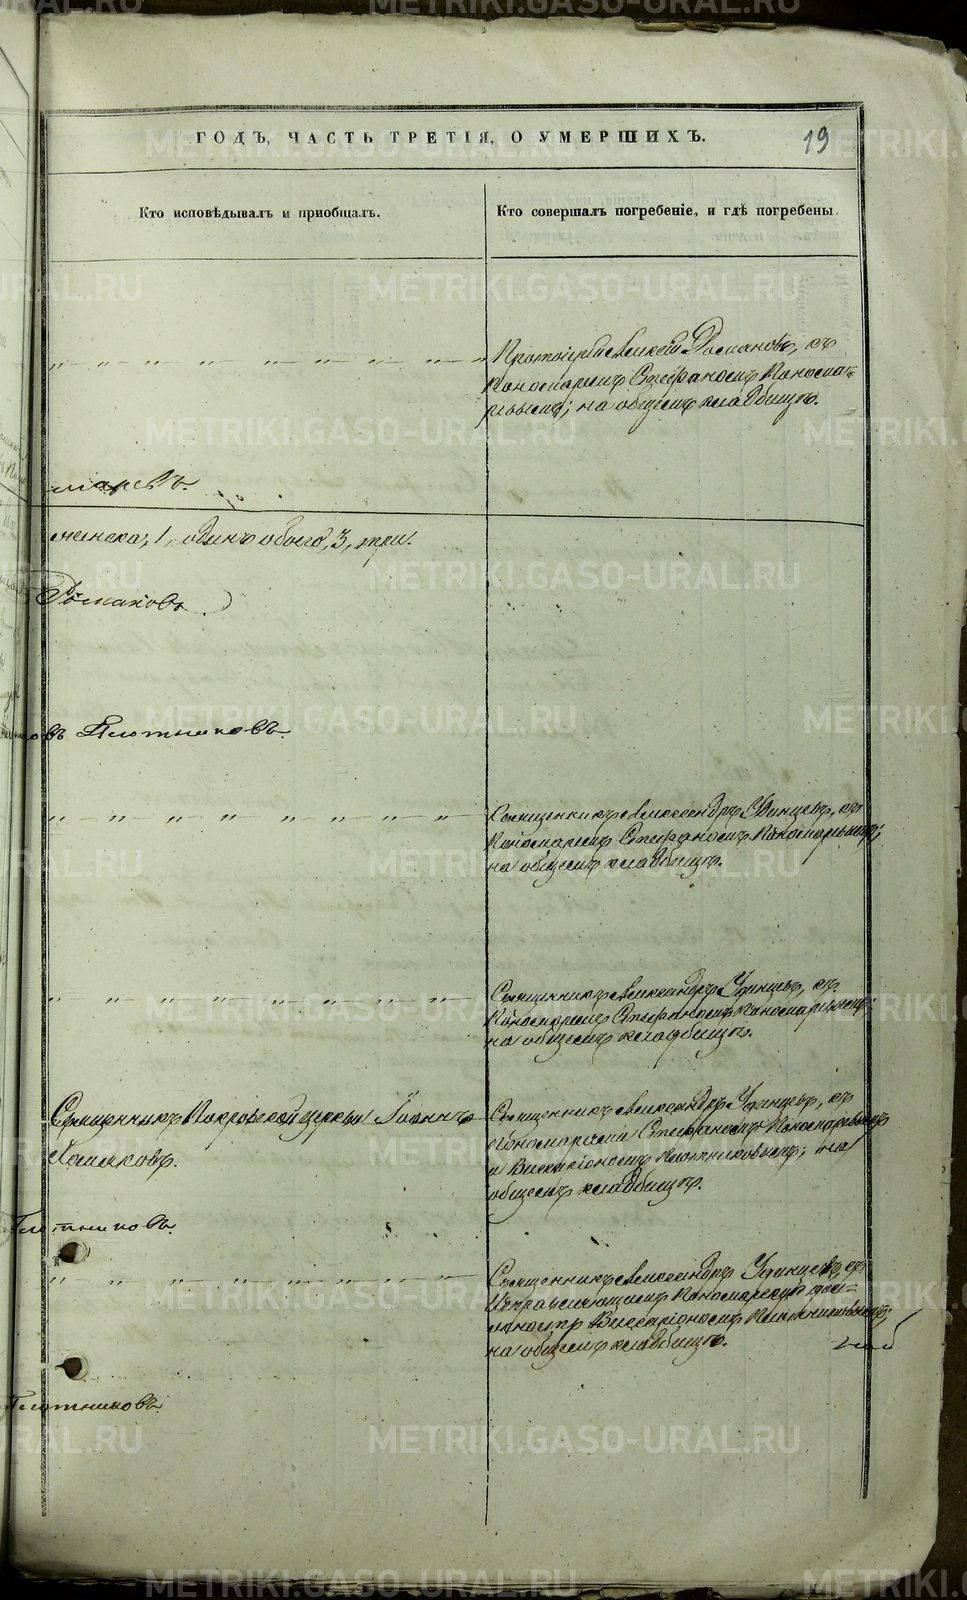 ГОДЪ, ЧАСТЬ ТРЕТІЯ, О УМЕРШИХЪ.
19
Кто исповѣдывалъ и пріобщалъ.
Кто совершалъ погребеніе, и гдѣ погребены.
Протоіерей Алексѣй Романовъ, съ
Пономаремъ Стефаномъ Понома-
ревымъ; на общемъ кладбищѣ.
маревъ.
женска, 1, одинъ обоего, 3, три.
Романовъ.
въ Плотниковъ.
Священникъ Александръ Удинцевъ, съ
Пономаремъ Стефаномъ Пономаревымъ;
на общемъ кладбищѣ.
Священникъ Александръ Удинцевъ, съ
Пономаремъ Стефаномъ Пономаревымъ;
на общемъ кладбищѣ.
Священникъ Покровской церкви Іоаннъ
Хамаковъ.
Священникъ Александръ Удинцевъ, съ
пономарями Стефаномъ Пономаревымъ
и Виссаріономъ Плотниковымъ; на
общемъ кладбищѣ.
Плотниковъ.
Священникъ Александръ Удинцевъ, съ
Исправляющимъ Пономарскую дол-
жность Виссаріономъ Плотниковымъ;
на общемъ кладбищѣ.
Плотниковъ.
METRIKI.GASO-URAL.RU